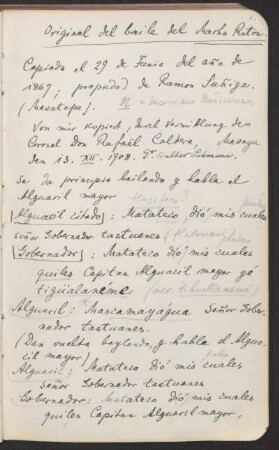 Original del baile del Macho Raton.
Copiada el 29 de Junio del año de
1867, propiedad de Ramon Zuñiga.
(Masatepe).
Von mir kopiert, durch Vermittlung des
Coronel Don Rafael Caldera, Masaya
den 13. XII. 1908. Dr Walter Lehmann.
Se da principio bailando y habla el
Alguacil mayor
[Alguacil citado]: Matateco dió mis cuales
señor Gobernador tastuanes
[Gobernador]: Matateco dió mis cuales
quiles Capitan Alguacil mayor yá
tiguialanéme
Alguacil: Mascamayagua Señor Gober-
nador tastuanes.
(Dan vuelta baylando, y habla el Algua-
cil mayor)
Alguacil: Matateco dió mis cuales
Señor Gobernador tastuanes
Gobernador: Matateco dió mis cuales
quiles Capitan Alguacil mayor,